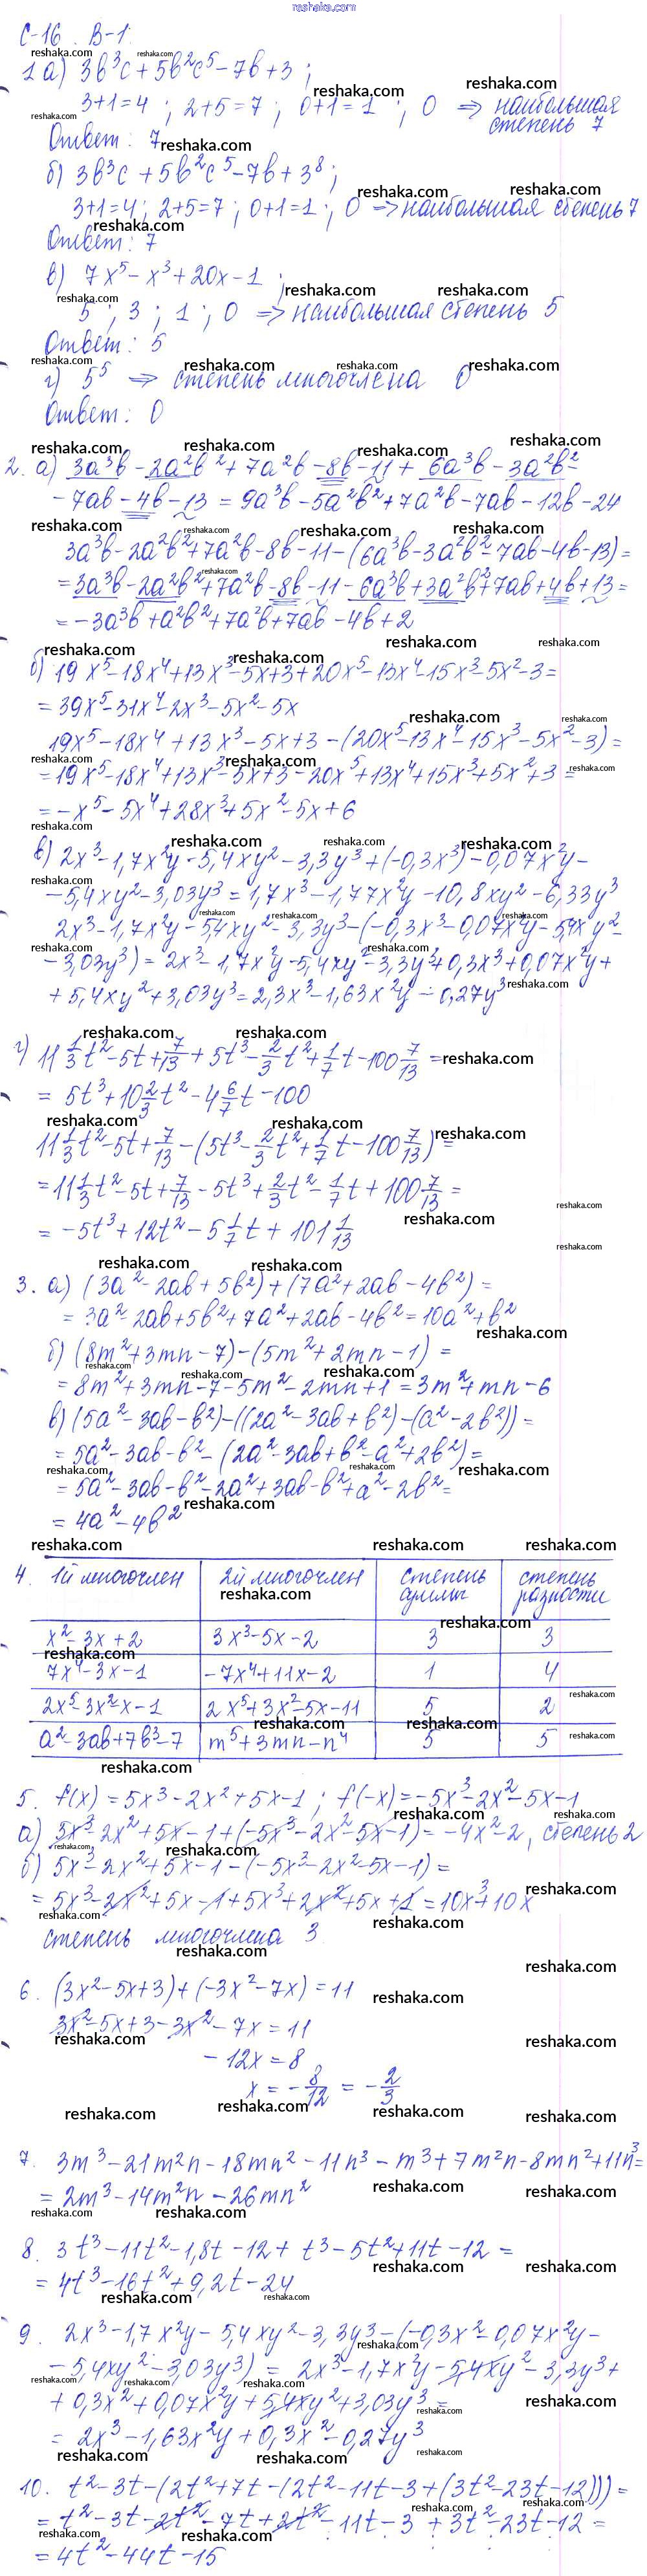 reshaka.com
С-16. В-1.
1. а) 3b³c + 5b²c⁵ - 7b + 3 ;
3+1=4 ; 2+5=7 ; 0+1=1 ; 0 ⇒ наибольшая
степень 7
Ответ: 7
б) 3b³c + 5b²c⁵ - 7b + 3⁸ ;
3+1=4 ; 2+5=7 ; 0+1=1 ; 0 ⇒ наибольшая степень 7
Ответ: 7
в) 7x⁵ - x³ + 20x - 1 ;
5 ; 3 ; 1 ; 0 ⇒ наибольшая степень 5
Ответ: 5
г) 5⁵ ⇒ степень многочлена 0
Ответ: 0
2. а) 3a³b - 2a²b² + 7a²b - 8b - 11 + 6a³b - 3a²b² -
- 7ab - 4b - 13 = 9a³b - 5a²b² + 7a²b - 7ab - 12b - 24
3a³b - 2a²b² + 7a²b - 8b - 11 - (6a³b - 3a²b² - 7ab - 4b - 13) =
= 3a³b - 2a²b² + 7a²b - 8b - 11 - 6a³b + 3a²b² + 7ab + 4b + 13 =
= -3a³b + a²b² + 7a²b + 7ab - 4b + 2
б) 19x⁵ - 18x⁴ + 13x³ - 5x + 3 + 20x⁵ - 13x⁴ - 15x³ - 5x² - 3 =
= 39x⁵ - 31x⁴ - 2x³ - 5x² - 5x
19x⁵ - 18x⁴ + 13x³ - 5x + 3 - (20x⁵ - 13x⁴ - 15x³ - 5x² - 3) =
= 19x⁵ - 18x⁴ + 13x³ - 5x + 3 - 20x⁵ + 13x⁴ + 15x³ + 5x² + 3 =
= -x⁵ - 5x⁴ + 28x³ + 5x² - 5x + 6
в) 2x³ - 1,7x²y - 5,4xy² - 3,3y³ + (-0,3x³) - 0,07x²y -
- 5,4xy² - 3,03y³ = 1,7x³ - 1,77x²y - 10,8xy² - 6,33y³
2x³ - 1,7x²y - 5,4xy² - 3,3y³ - (-0,3x³ - 0,07x²y - 5,4xy² -
- 3,03y³) = 2x³ - 1,7x²y - 5,4xy² - 3,3y³ + 0,3x³ + 0,07x²y +
+ 5,4xy² + 3,03y³ = 2,3x³ - 1,63x²y - 0,27y³
г) 11 1/3 t² - 5t + 7/13 + 5t³ - 2/3 t² + 1/7 t - 100 7/13 =
= 5t³ + 10 2/3 t² - 4 6/7 t - 100
11 1/3 t² - 5t + 7/13 - (5t³ - 2/3 t² + 1/7 t - 100 7/13) =
= 11 1/3 t² - 5t + 7/13 - 5t³ + 2/3 t² - 1/7 t + 100 7/13 =
= -5t³ + 12t² - 5 1/7 t + 101 1/13
3. а) (3a² - 2ab + 5b²) + (7a² + 2ab - 4b²) =
= 3a² - 2ab + 5b² + 7a² + 2ab - 4b² = 10a² + b²
б) (8m² + 3mn - 7) - (5m² + 2mn - 1) =
= 8m² + 3mn - 7 - 5m² - 2mn + 1 = 3m² + mn - 6
в) (5a² - 3ab - b²) - ((2a² - 3ab + b²) - (a² - 2b²)) =
= 5a² - 3ab - b² - (2a² - 3ab + b² - a² + 2b²) =
= 5a² - 3ab - b² - 2a² + 3ab - b² + a² - 2b² =
= 4a² - 4b²
4. 1й многочлен 2й многочлен степень суммы степень разности
x² - 3x + 2 3x³ - 5x - 2 3 3
7x⁴ - 3x - 1 -7x⁴ + 11x - 2 1 4
2x⁵ - 3x² - x - 1 2x⁵ + 3x² - 5x - 11 5 2
a² - 3ab + 7b³ - 7 m⁵ + 3mn - n⁴ 5 5
5. f(x) = 5x³ - 2x² + 5x - 1 ; f(-x) = -5x³ - 2x² - 5x - 1
а) 5x³ - 2x² + 5x - 1 + (-5x³ - 2x² - 5x - 1) = -4x² - 2, степень 2
б) 5x³ - 2x² + 5x - 1 - (-5x³ - 2x² - 5x - 1) =
= 5x³ - 2x² + 5x - 1 + 5x³ + 2x² + 5x + 1 = 10x³ + 10x
степень многочлена 3
6. (3x² - 5x + 3) + (-3x² - 7x) = 11
3x² - 5x + 3 - 3x² - 7x = 11
- 12x = 8
x = - 8/12 = - 2/3
7. 3m³ - 21m²n - 18mn² - 11n³ - m³ + 7m²n - 8mn² + 11n³ =
= 2m³ - 14m²n - 26mn²
8. 3t³ - 11t² - 1,8t - 12 + t³ - 5t² + 11t - 12 =
= 4t³ - 16t² + 9,2t - 24
9. 2x³ - 1,7x²y - 5,4xy² - 3,3y³ - (-0,3x² - 0,07x²y -
- 5,4xy² - 3,03y³) = 2x³ - 1,7x²y - 5,4xy² - 3,3y³ +
+ 0,3x² + 0,07x²y + 5,4xy² + 3,03y³ =
= 2x³ - 1,63x²y + 0,3x² - 0,27y³
10. t² - 3t - (2t² + 7t - (2t² - 11t - 3 + (3t² - 23t - 12))) =
= t² - 3t - 2t² - 7t + 2t² - 11t - 3 + 3t² - 23t - 12 =
= 4t² - 44t - 15